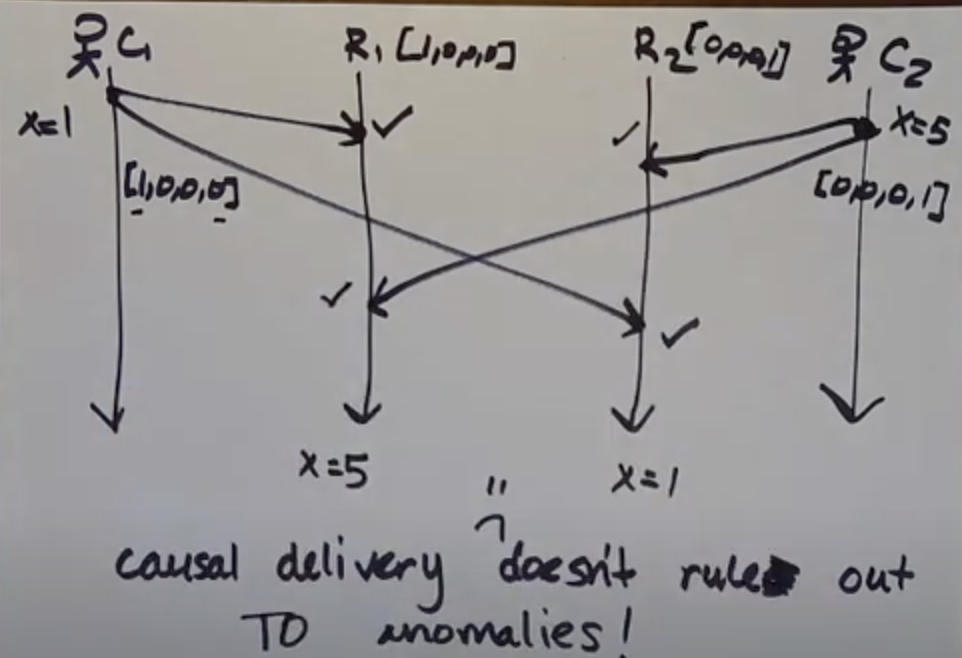 C1 R1 [1,0,0,0] R2 [0,0,0,1] C2
x=1 ✓ ✓ x=5
[1,0,0,0] [0,0,0,1]
✓ ✓
x=5 x=1
"
causal delivery doesn't rule out
TO anomalies!